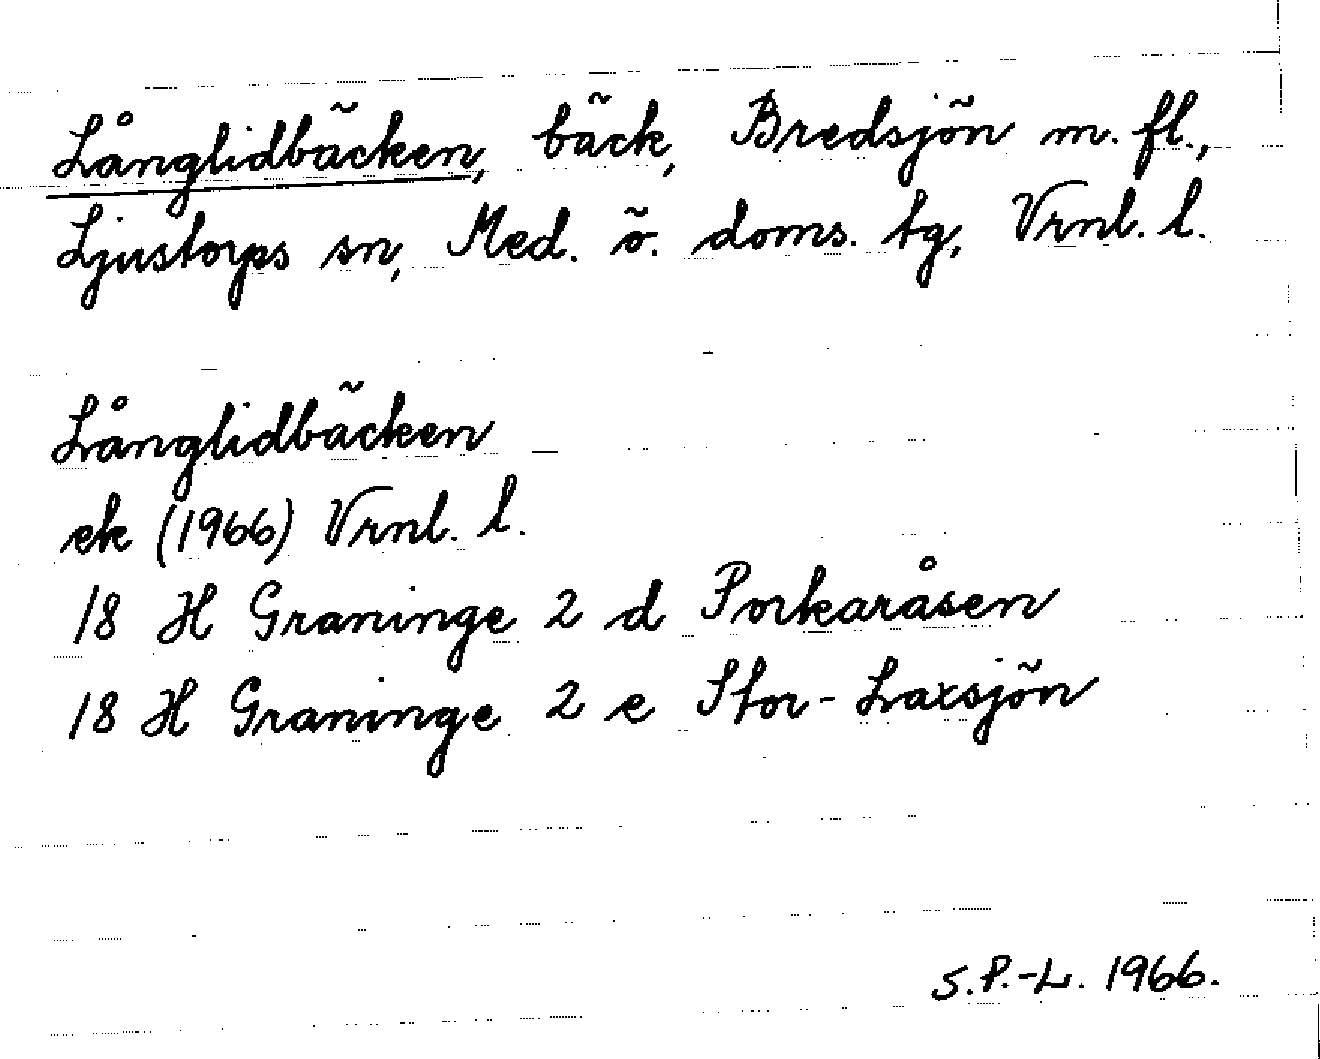 Långlidbäcken, bäck, Bredsjön m. fl.,
Ljustorps sn, Med. ö. doms. tg, Vrnl. l.
Långlidbäcken
ek (1966) Vrnl. l.
18 H Graninge 2 d Porkaråsen
18 H Graninge 2 e Stor-Laxsjön
S.P.-L. 1966.